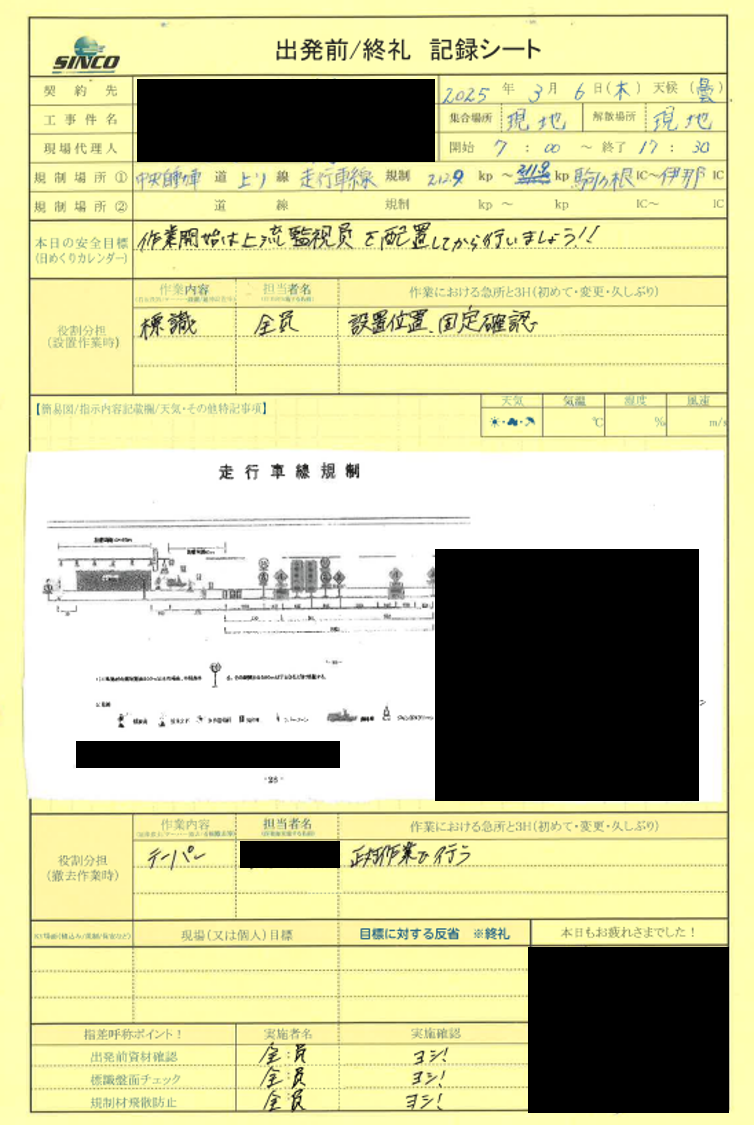 SINCO
出発前/終礼 記録シート
契約先
2025 年 3 月 6 日(木) 天候(曇)
工事件名
集合場所 現地 解散場所 現地
現場代理人
開始 7 : 00 ~ 終了 17 : 30
規制場所① 中央 道 上り 線 走行車線 規制 212.9 kp ~ kp 駒ヶ根 IC~伊那 IC
規制場所② 道 線 規制 kp ~ kp IC~ IC
本日の安全目標
(日めくりカレンダー)
作業開始は上流監視員を配置してから行いましょう!!
役割分担
(設置作業時)
作業内容 担当者名 作業における急所と3H(初めて・変更・久しぶり)
標識 全員 設置位置、固定確認
【簡易図/指示内容記載欄/天気・その他特記事項】
天気 気温 湿度 風速
℃ % m/s
走行車線規制
-26-
役割分担
(撤去作業時)
作業内容 担当者名 作業における急所と3H(初めて・変更・久しぶり)
テーパー 正対作業で行う
現場(又は個人)目標 目標に対する反省 ※終礼 本日もお疲れさまでした!
指差呼称ポイント! 実施者名 実施確認
出発前資材確認 全員 ヨシ!
標識盤面チェック 全員 ヨシ!
規制材飛散防止 全員 ヨシ!